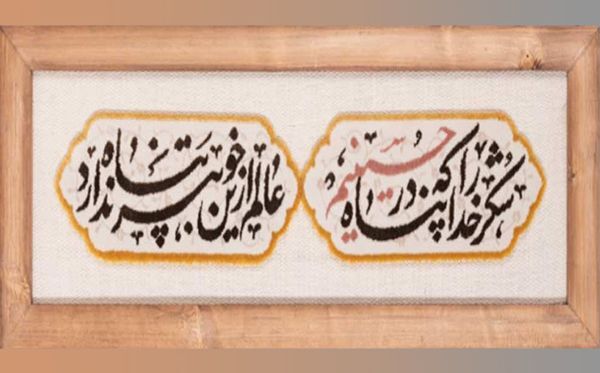 شکر خدا را که در پناه حسینیم
عالم از این خوبتر پناه ندارد